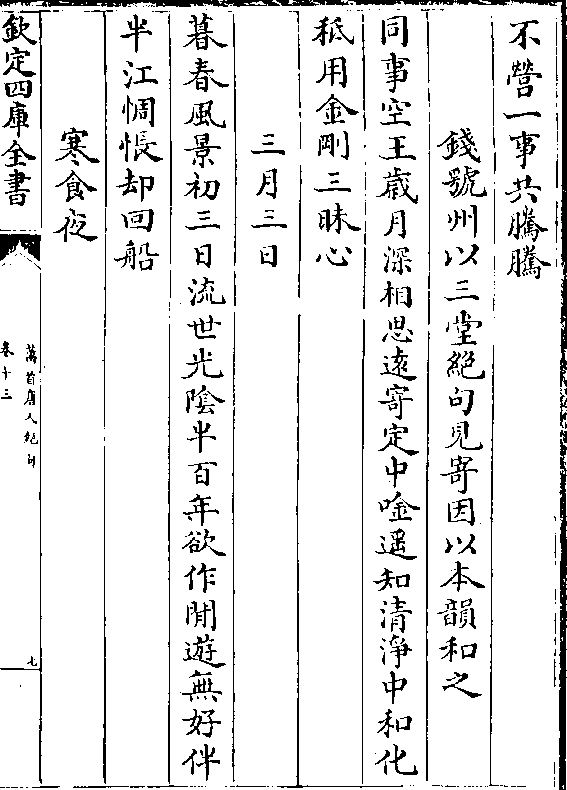 不營一事共騰騰
錢號州以三堂絶句見寄因以本韻和之
同事空王歳月深相思逺寄定中唫遥知清淨中和化
秪用金剛三昧心
三月三日
暮春風景初三日流世光陰半百年欲作閒遊無好伴
半江惆悵却回船
寒食夜
欽定四庫全書
萬首唐人絶句
卷十三
七